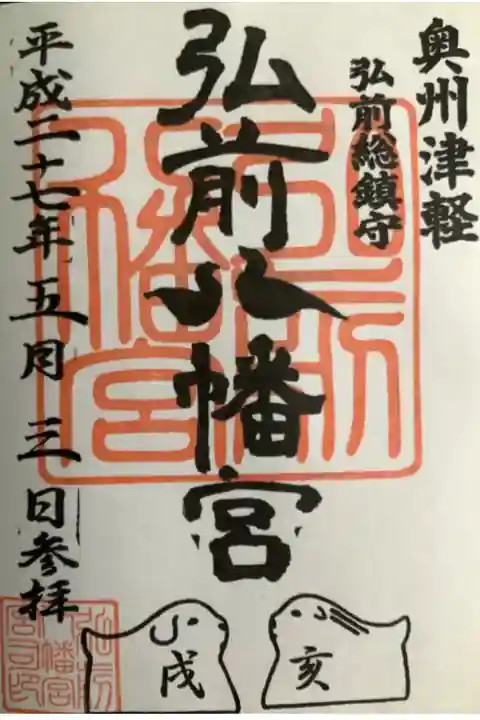 奥州津軽
弘前総鎮守
弘前八幡宮
平成二十七年五月三日参拝
亥
戌
弘前八幡宮
弘前八幡宮宮司印